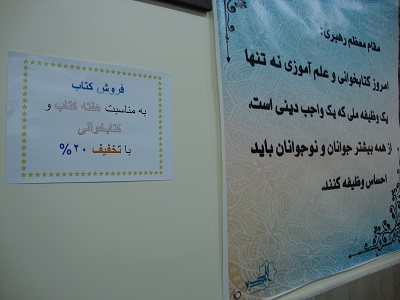 فروش کتاب
به مناسبت هفته کتاب و
کتابخوانی
با تخفیف ۲۰%
مقام معظم رهبری:
امروز کتابخوانی و علم آموزی نه تنها
یک وظیفه ملی که یک واجب دینی است.
از همه بیشتر جوانان و نوجوانان باید
احساس وظیفه کنند.